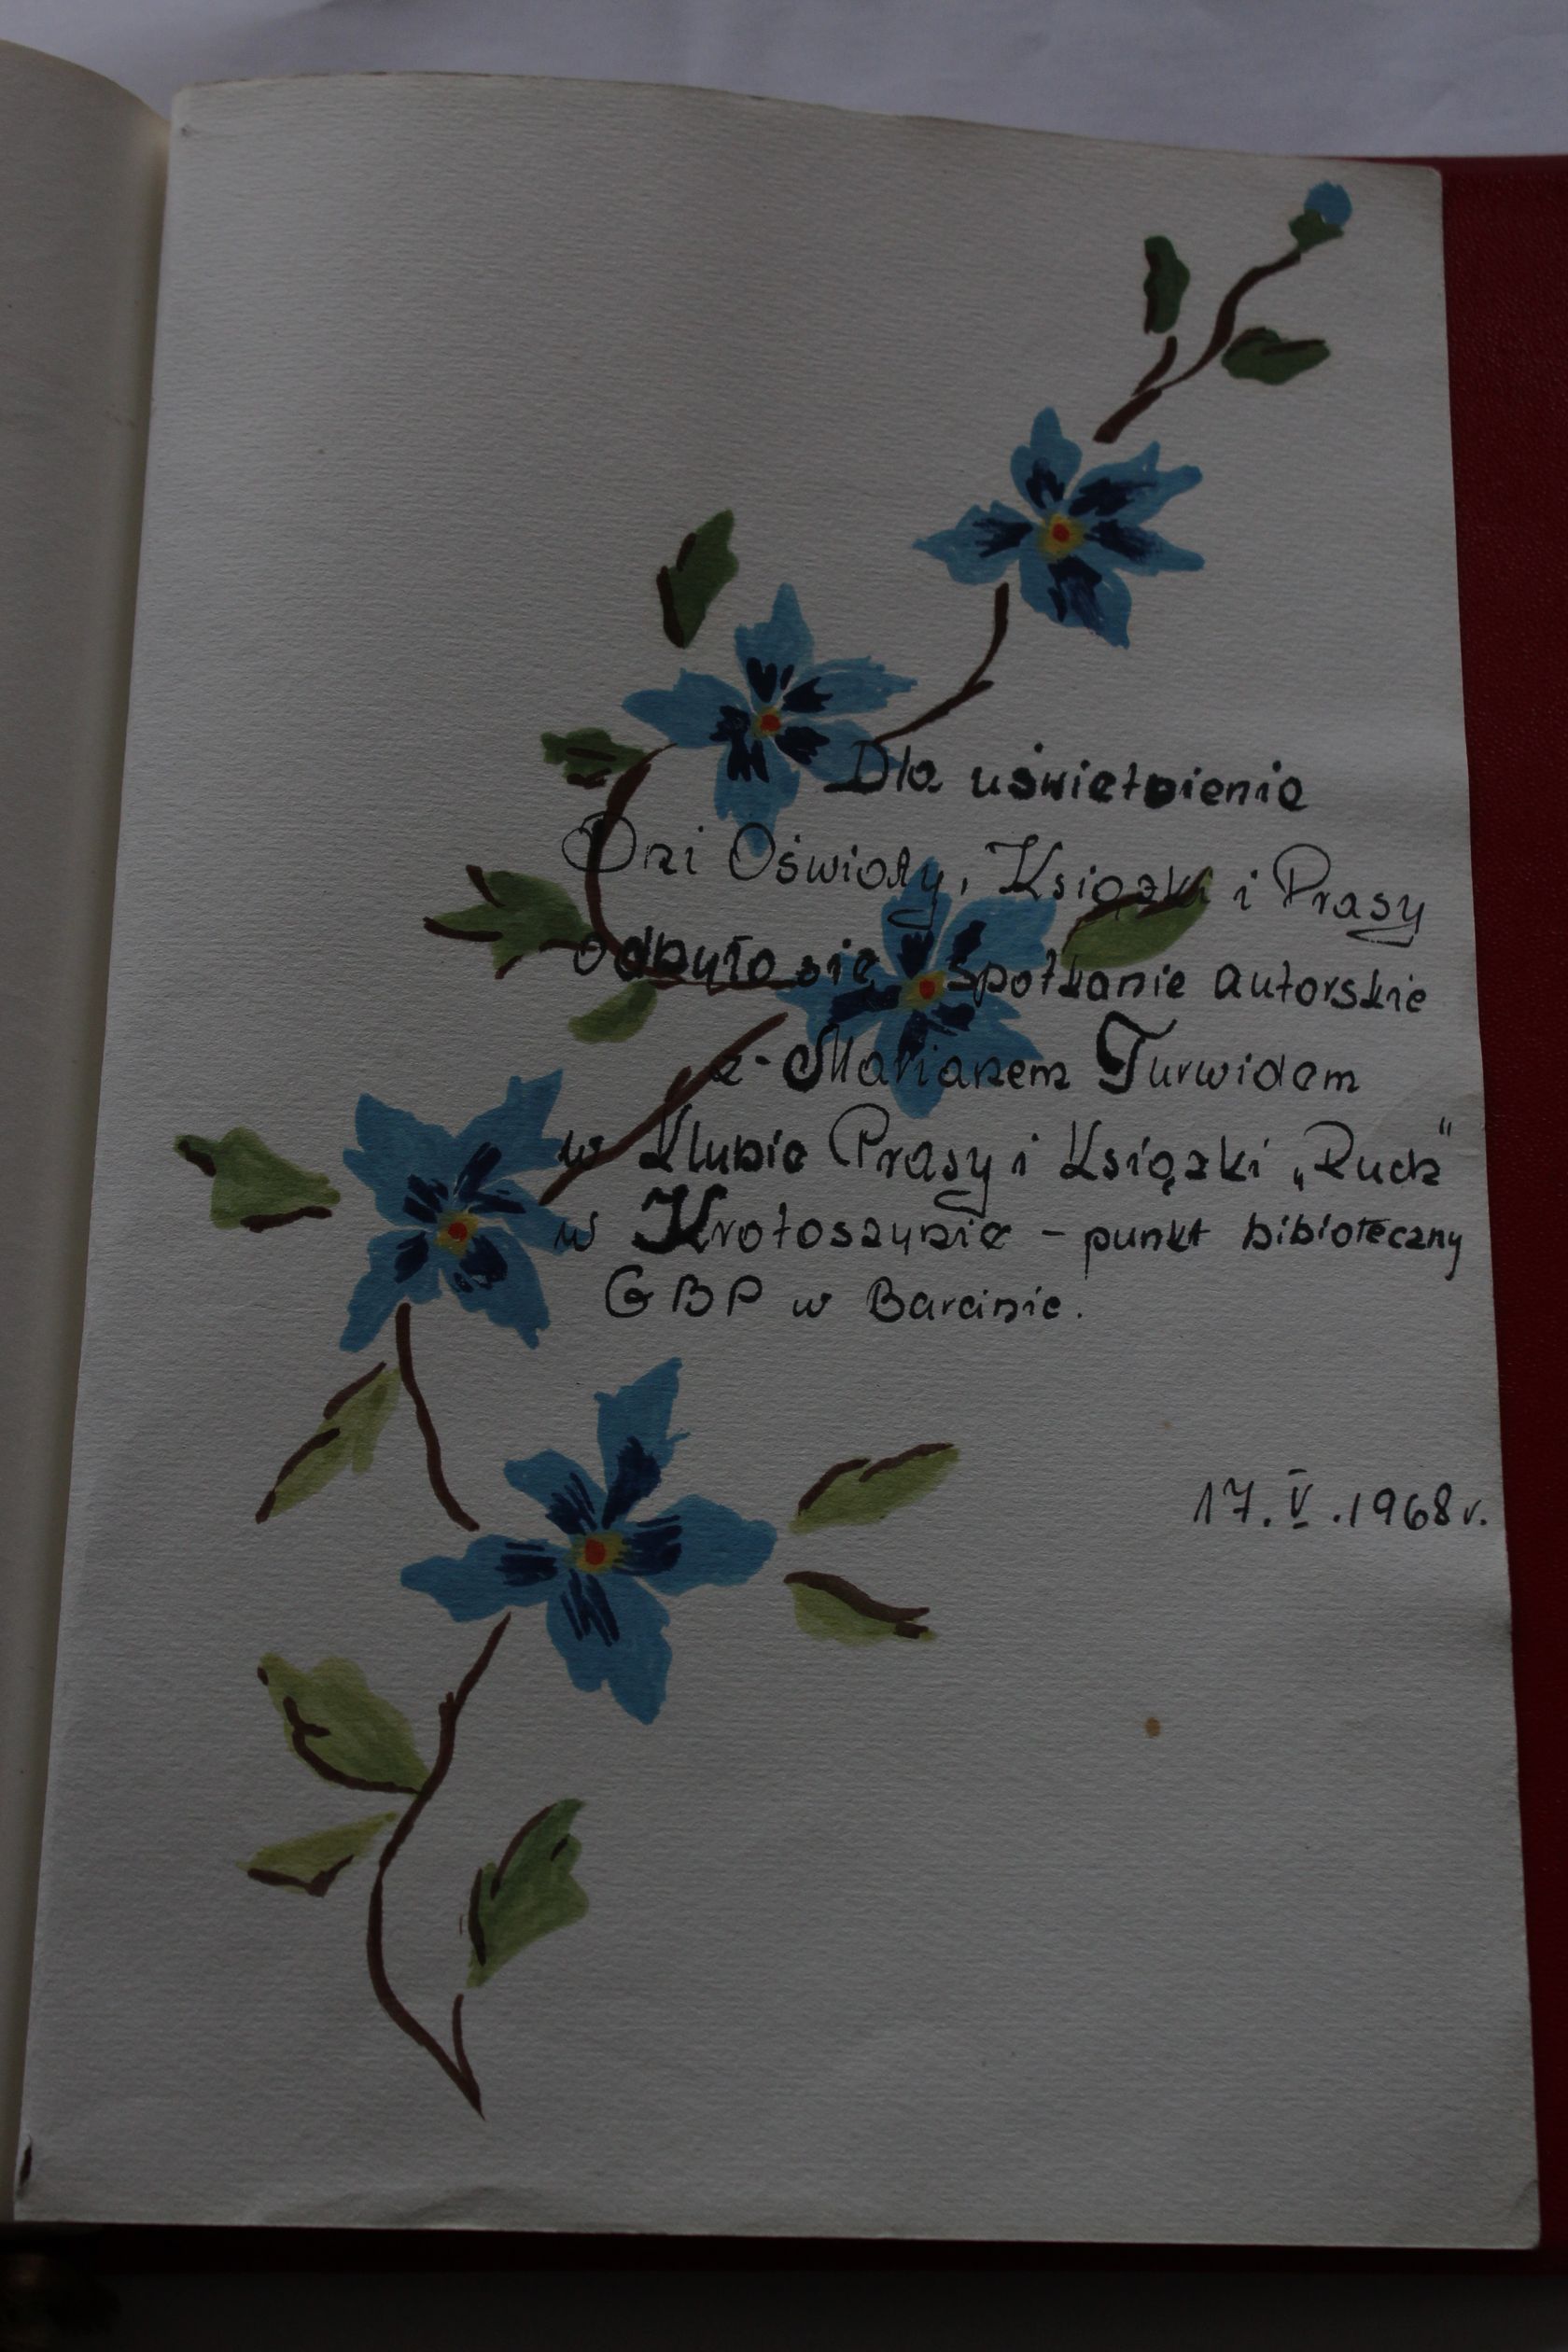 Dla uświetnienia
Dni Oświaty, Książki i Prasy
odbyło się spotkanie autorskie
z Marianem Turwidem
w Klubie Prasy i Książki „Ruch"
w Krotoszynie - punkt bibioteczny
GBP w Barcinie.
17.V.1968r.